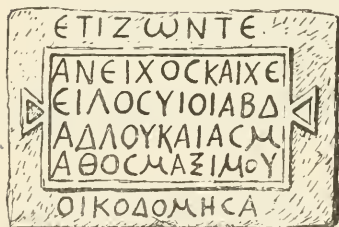 ΕΤΙΖѠΝΤΕ
ΑΝΕΙΧΟϹΚΑΙΧΕ
ΕΙΛΟϹΥΙΟΙΑΒΔ
ΑΔΛΟΥΚΑΙΑϹΜ
ΑΘΟϹΜΑΞΙΜΟΥ
ΟΙΚΟΔΟΜΗϹΑ